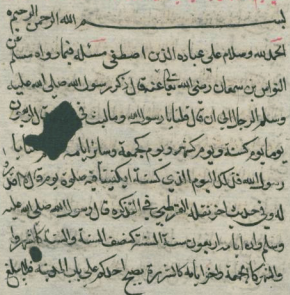 بسم الله الرحمن الرحيم
الحمد لله وسلام على عباده الذين اصطفى مسئلة فيما رواه مسلم عن
النواس بن سمعان رضي الله تعالى عنه قال ذكر رسول الله صلى الله عليه
وسلم الدجال الى ان قال قلنا يا رسول الله وما لبثه في قال اربعون
يوما يوم كسنة ويوم كشهر ويوم كجمعة وسائر ايامه يا
رسول الله فذلك اليوم الذي كسنة ايكفينا فيه صلوة يوم قال لا اقدروا
له وفي حديث اخر نقله القرطبي في التذكرة قال رسول الله صلى الله عليه
وسلم وان ايامه اربعون سنة السنة كنصف السنة والسنة كالشهر
والشهر كالجمعة واخر ايامه كالشررة يصبح احدكم على باب المدينة فلا يبلغ